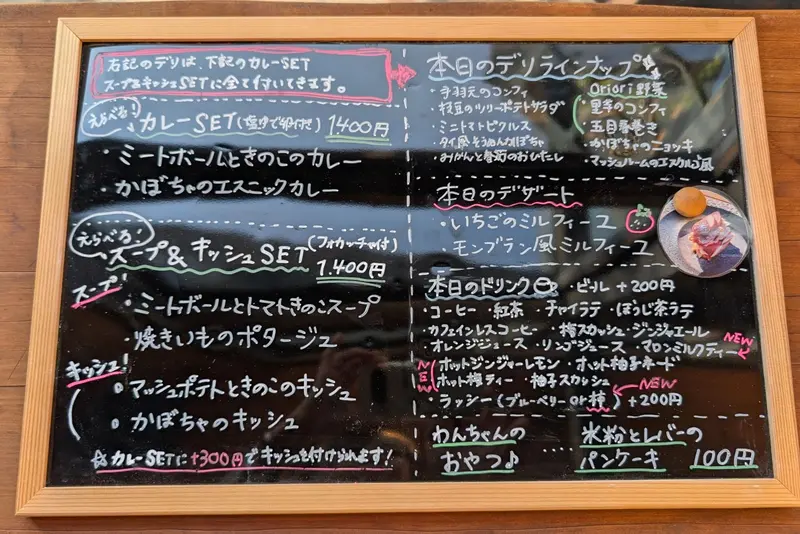 右記のデリは、下記のカレーSET
スープ&キッシュSETに全て付いてきます。
えらべる!
カレーSET(塩ゆで卵付き) 1400円
・ミートボールときのこのカレー
・かぼちゃのエスニックカレー
えらべる!
スープ&キッシュSET (フォカッチャ付)
1.400円
スープ!
・ミートボールとトマトきのこスープ
・焼きいものポタージュ
キッシュ!
・マッシュポテトときのこのキッシュ
・かぼちゃのキッシュ
☆カレーSETに+300円でキッシュを付けられます!
本日のデリラインナップ
・手羽元のコンフィ
・枝豆のツリーポテトサラダ
・ミニトマトピクルス
・タイ風そうめんかぼちゃ
・みかんと春菊のおひたし
Oriori野菜
・里芋のコンフィ
・五目春巻き
・かぼちゃのニョッキ
・マッシュルームのエスカルゴ風
本日のデザート
・いちごのミルフィーユ
・モンブラン風ミルフィーユ
本日のドリンク ・ビール +200円
・コーヒー ・紅茶 ・チャイラテ ・ほうじ茶ラテ
・カフェインレスコーヒー ・梅スカッシュ・ジンジャエール
・オレンジジュース ・リンゴジュース ・マロンミルクティー NEW
NEW
・ホットジンジャーレモン ・ホット柚子ネード
・ホット梅ティー ・柚子スカッシュ
・ラッシー(ブルーベリーor柿) +200円 NEW
わんちゃんの
おやつ♪
‥‥
米粉とレバーの
パンケーキ 100円